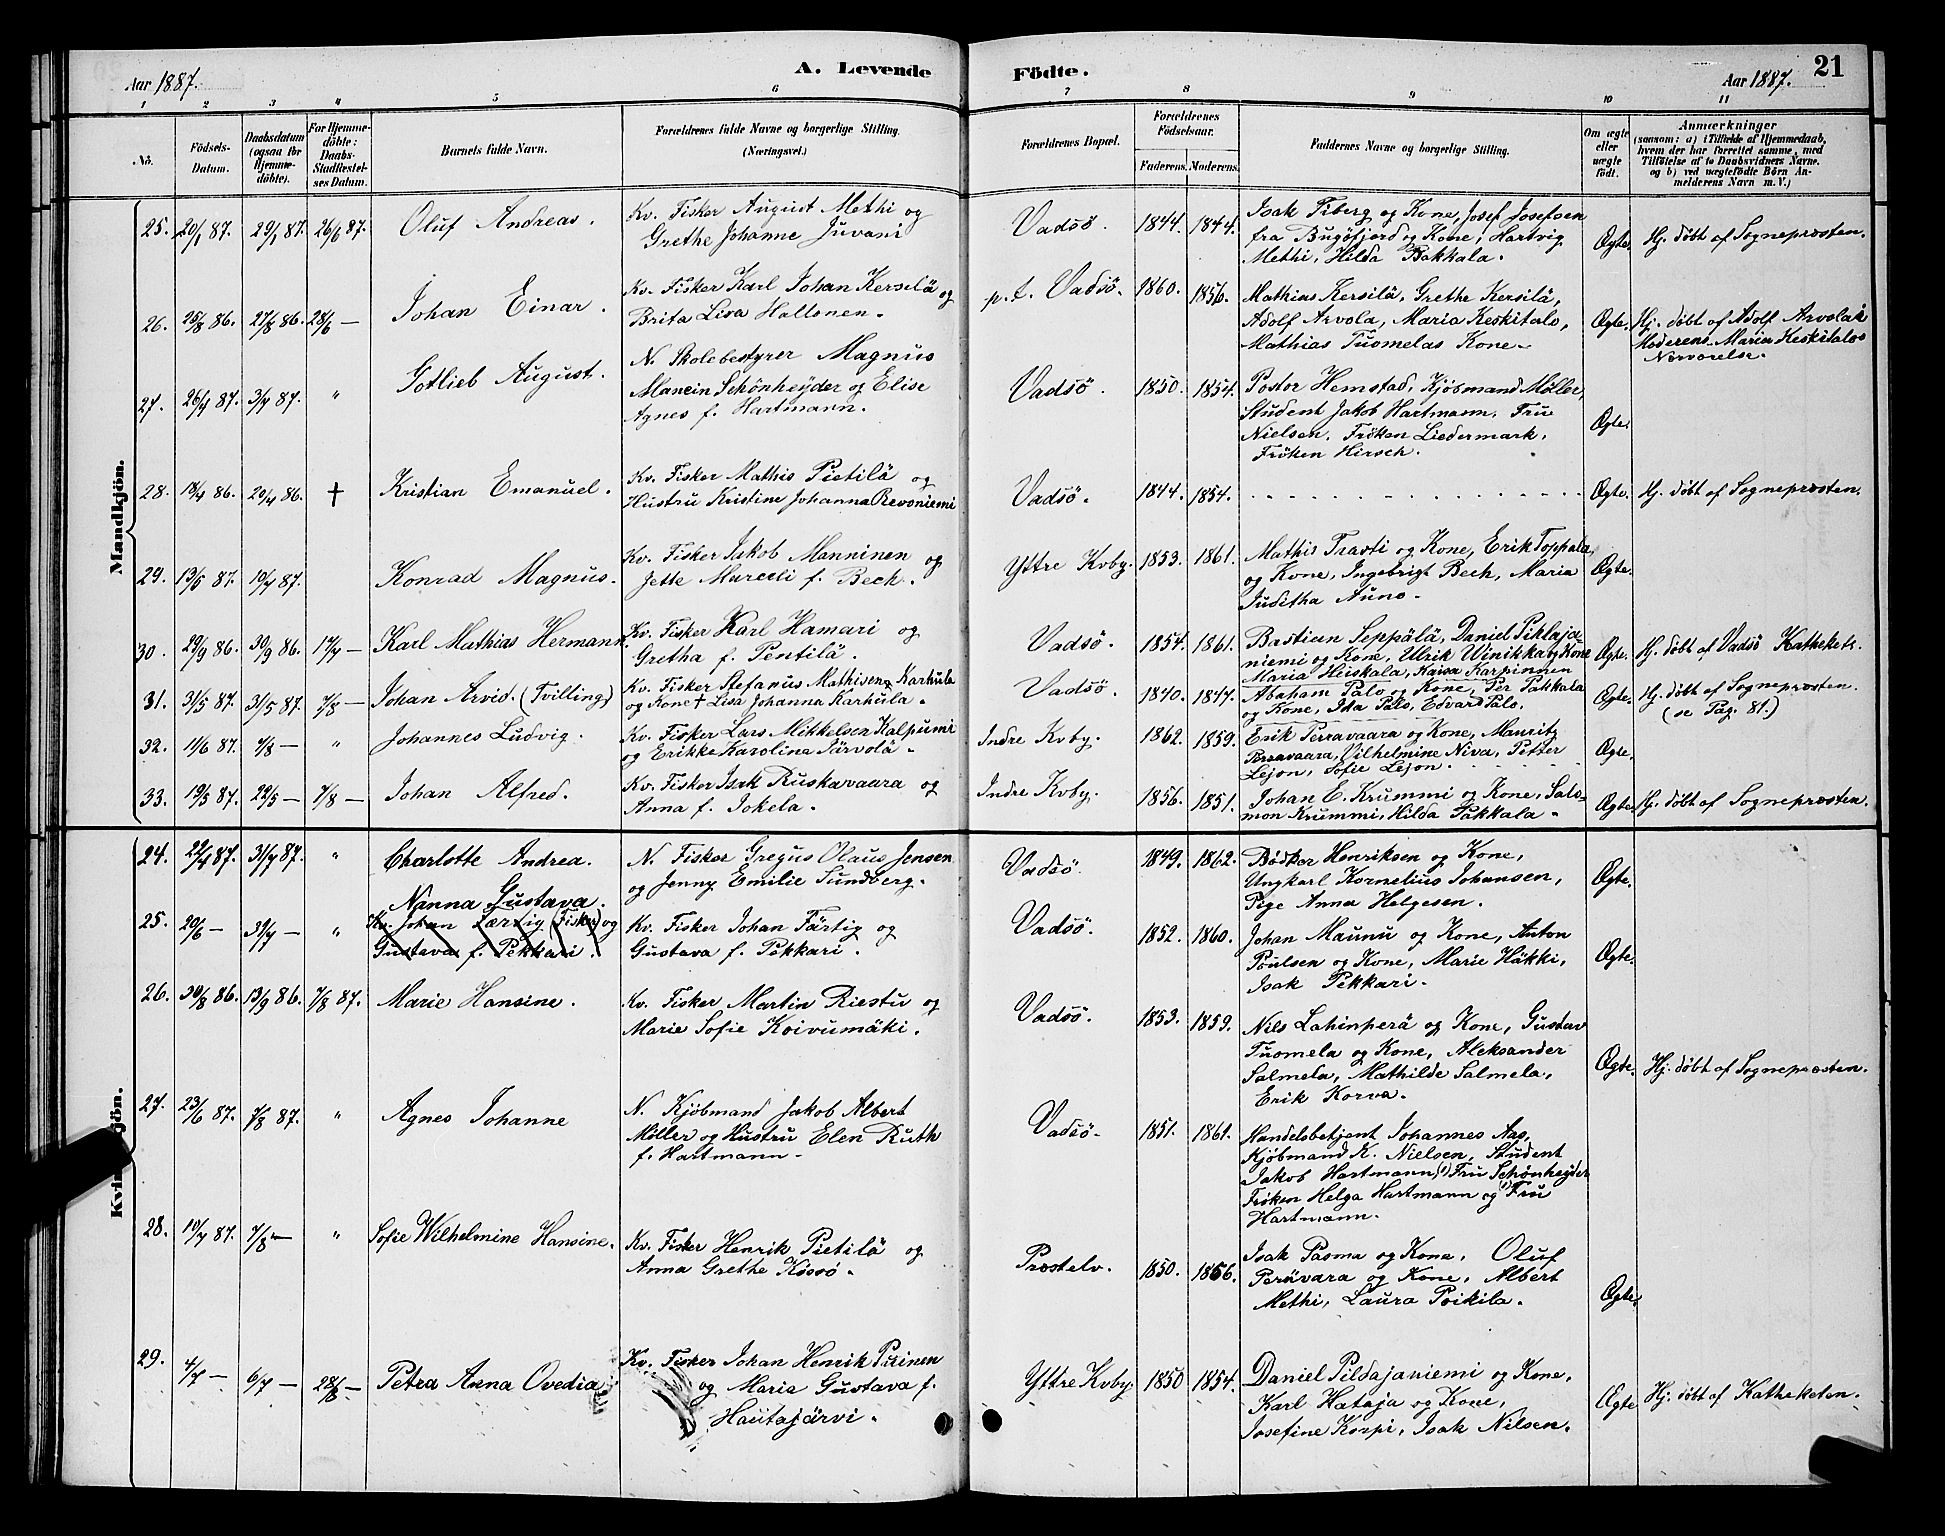 Aar 1887.
A. Levende
Födte.
Aar 1887.
21
1 2 3 4 5 6 7 8 9 10 11
No.
Födsels-Datum.
Daabsdatum (ogsaa for Hjemme-döbte).
For Hjemme-döbte: Daabs-Stadfæstel-ses Datum.
Barnets fulde Navn.
Forældrenes fulde Navne og borgerlige Stilling. (Næringsvei.)
Forældrenes Bopæl.
Forældrenes Födselsaar.
Faderens. Moderens.
Faddernes Navne og borgerlige Stilling.
Om ægte eller uægte födt.
Anmærkninger
(saasom: a) i Tilfælde af Hjemmedaab, hvem der har forrettet samme, med Tilföielse af to Daabsvidners Navne. og b) ved uægtefödte Börn An-melderens Navn m.V.)
Mandkjön.
25. 20/1 87. 29/1 87. 26/6 87. Oluf Andreas. Kv. Fisker August Methi og
Grethe Johanne Juvani
Vadsö. 1844. 1844. Isak Fiberg og Kone, Josef Josefsen
fra Bugöfjord og Kone, Hartvig
Methi, Hilda Pakkala.
Ægte. Hj. döbt af Sognepræsten.
26. 25/8 86. 27/8 86. 28/6 — Johan Einar. Kv. Fisker Karl Johan Kersilä og
Brita Lisa Hallonen.
p.t. Vadsö. 1860. 1856. Mathias Kersilä, Grethe Kersilä,
Adolf Arvola, Maria Keskitalo,
Mathias Tuomelas Kone.
Ægte. Hj. döbt af Adolf Arvola i
Moderens Maria Keskitalos
Nærværelse.
27. 26/4 87. 3/7 87. " Gotlieb August. N. Skolebestyrer Magnus
Mancin Schönheyder og Elise
Agnes f. Hartmann.
Vadsö. 1850. 1854. Pastor Hemstad, Kjöbmand Møller,
Student Jakob Hartmann, Fru
Nielsen, Fröken Liedermark,
Fröken Hirsch.
Ægte.
28. 18/4 86. 20/4 86. † Kristian Emanuel. Kv. Fisker Mathis Pietilä og
Hustru Kristine Johanna Revoniemi
Vadsö. 1844. 1854. Ægte. Hj. döbt af Sognepræsten.
29. 13/5 87. 10/7 87. Konrad Magnus. Kv. Fisker Jakob Manninen og
Jette Mareeli f. Bech.
Yttre Kvby. 1853. 1861. Mathis Trasti og Kone, Erik Toppala
og Kone, Ingebrigt Bech, Maria
Juditha Auno.
Ægte.
30. 29/9 86. 30/9 86. 17/7 — Karl Mathias Hermann. Kv. Fisker Karl Hamari og
Gretha f. Pentilä.
Vadsö. 1854. 1861. Bastian Seppälä, Daniel Piklaja-
niemi og Kone, Ulrik Winikka og Kone
Maria Heiskala, Kaisa Karpinen
Ægte. Hj. döbt af Vadsö Kathekets.
31. 31/5 87. 31/5 87. 7/8 — Johan Arvid. (Tvilling) Kv. Fisker Stefanus Mathisen Karhula
og Kone † Lisa Johanna Karhula.
Vadsö. 1840. 1847. Abraham Palo og Kone, Per Pakkala
og Kone, Ida Palo, Edvard Palo.
Ægte. Hj. döbt af Sognepræsten.
(se Pag. 81.)
32. 11/6 87. 7/8 — " Johannes Ludvig. Kv. Fisker Lars Mikkelsen Kalpumi
og Erikke Karolina Särvolä.
Indre Kvby. 1862. 1859. Erik Perravaara og Kone, Mauritz
Perravaara, Vilhelmine Niva, Petter
Lejon, Sofie Lejon.
Ægte.
33. 19/5 87. 22/5 — 7/8 — Johan Alfred. Kv. Fisker Isak Ruskavaara og
Anna f. Jokela.
Indre Kvby. 1856. 1851. Johan E. Krummi og Kone, Salo-
mon Krummi, Hilda Pakkala.
Ægte. Hj. döbt af Sognepræsten.
Kvi jön.
24. 22/4 87. 31/7 87. " Charlotte Andrea. N. Fisker Gregus Olaus Jensen
og Jenny Emilie Sundberg.
Vadsö. 1849. 1862. Bødker Henriksen og Kone,
Ungkarl Kornelius Johansen,
Pige Anna Helgesen.
Ægte.
25. 20/6 — 31/7 — " Nanna Gustava.
Kv. Johan Færtig (Fisker) og
Gustava f. Pekkari.
Kv. Fisker Johan Färtig og
Gustava f. Pekkari.
Vadsö. 1852. 1860. Johan Maunu og Kone, Anton
Poulsen og Kone, Marie Häkki,
Isak Pekkari.
Ægte.
26. 30/8 86. 13/9 86. 7/8 87. Marie Hansine. Kv. Fisker Martin Riestu og
Marie Sofie Koivumäki.
Vadsö. 1853. 1859. Nils Lahinperä og Kone, Gustav
Tuomela og Kone, Aleksander
Salmela, Mathilde Salmela,
Erik Korva.
Ægte. Hj. döbt af Sognepræsten.
27. 23/6 87. 7/8 87. " Agnes Johanne N. Kjöbmand Jakob Albert
Møller og Hustru Elen Ruth
f. Hartmann.
Vadsö. 1851. 1861. Handelsbetjent Johannes Aas,
Kjöbmand K. Nielsen, Student
Jakob Hartmann, Fru Schönheyder
Fröken Helga Hartmann og Fru
Hartmann.
28. 10/7 87. 7/8 — " Sofie Wilhelmine Hansine. Kv. Fisker Henrik Pietilä og
Anna Grethe Kössö.
Præstelv. 1850. 1856. Isak Pasma og Kone, Oluf
Perävara og Kone, Albert
Methi, Laura Poikila.
Ægte.
29. 4/7 — 6/7 — 28/8 — Petra Anna Ovedia Kv. Fisker Johan Henrik Pirinen
og Maria Gustava f.
Hautajärvi.
Yttre Kvby. 1850 1854. Daniel Pildajaniemi og Kone,
Karl Hataja og Kone,
Josefine Korpi, Isak Nilsen.
Ægte Hj. döbt af Katheketen.